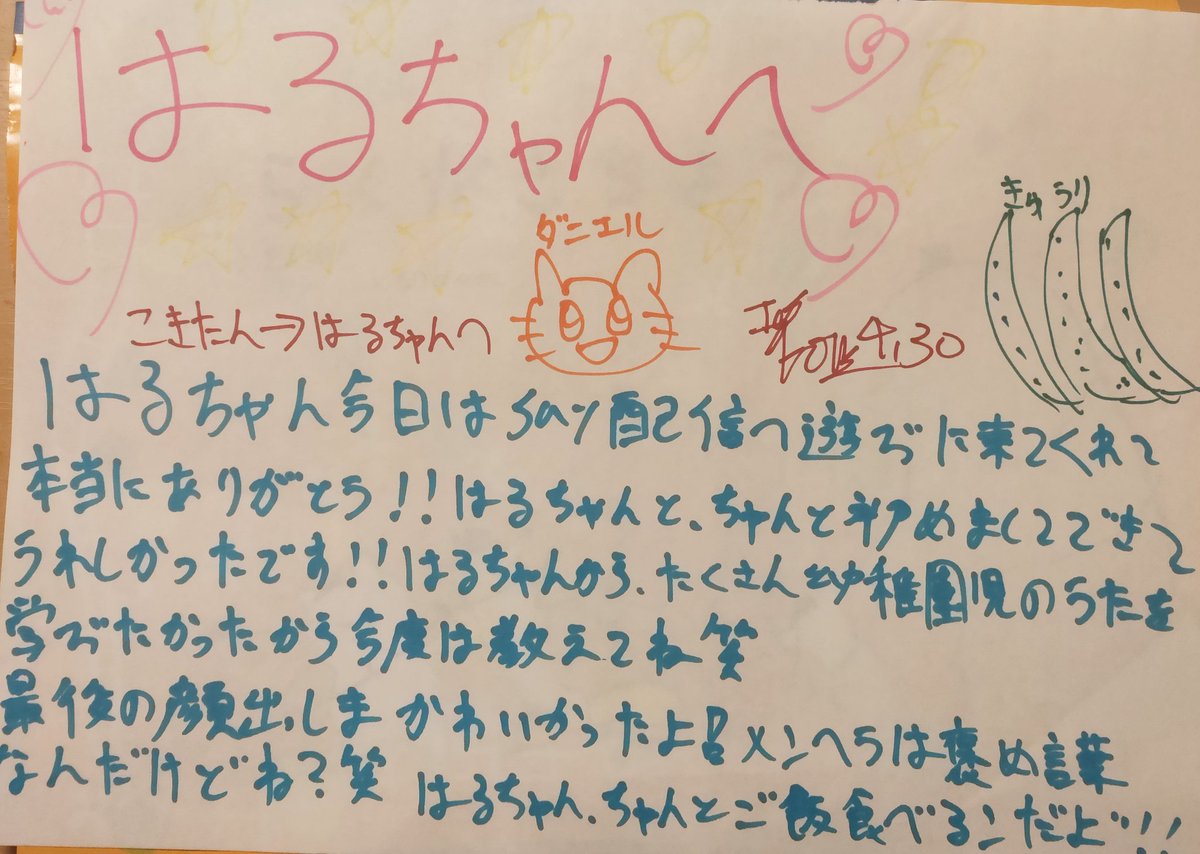 はるちゃんへ
きゅうり
ダニエル
こきたん→はるちゃんへ
4.30
はるちゃん今日はsay配信へ遊びに来てくれて
本当にありがとう!!はるちゃんと、ちゃんと初めましてできて
うれしかったです!!はるちゃんから、たくさん幼稚園児のうたを
学びたかったから今度は教えてね笑
最後の顔出ししま かわいかったよ!!メンヘラは褒め言葉
なんだけどね?笑 はるちゃん、ちゃんとご飯食べるンだよ!!